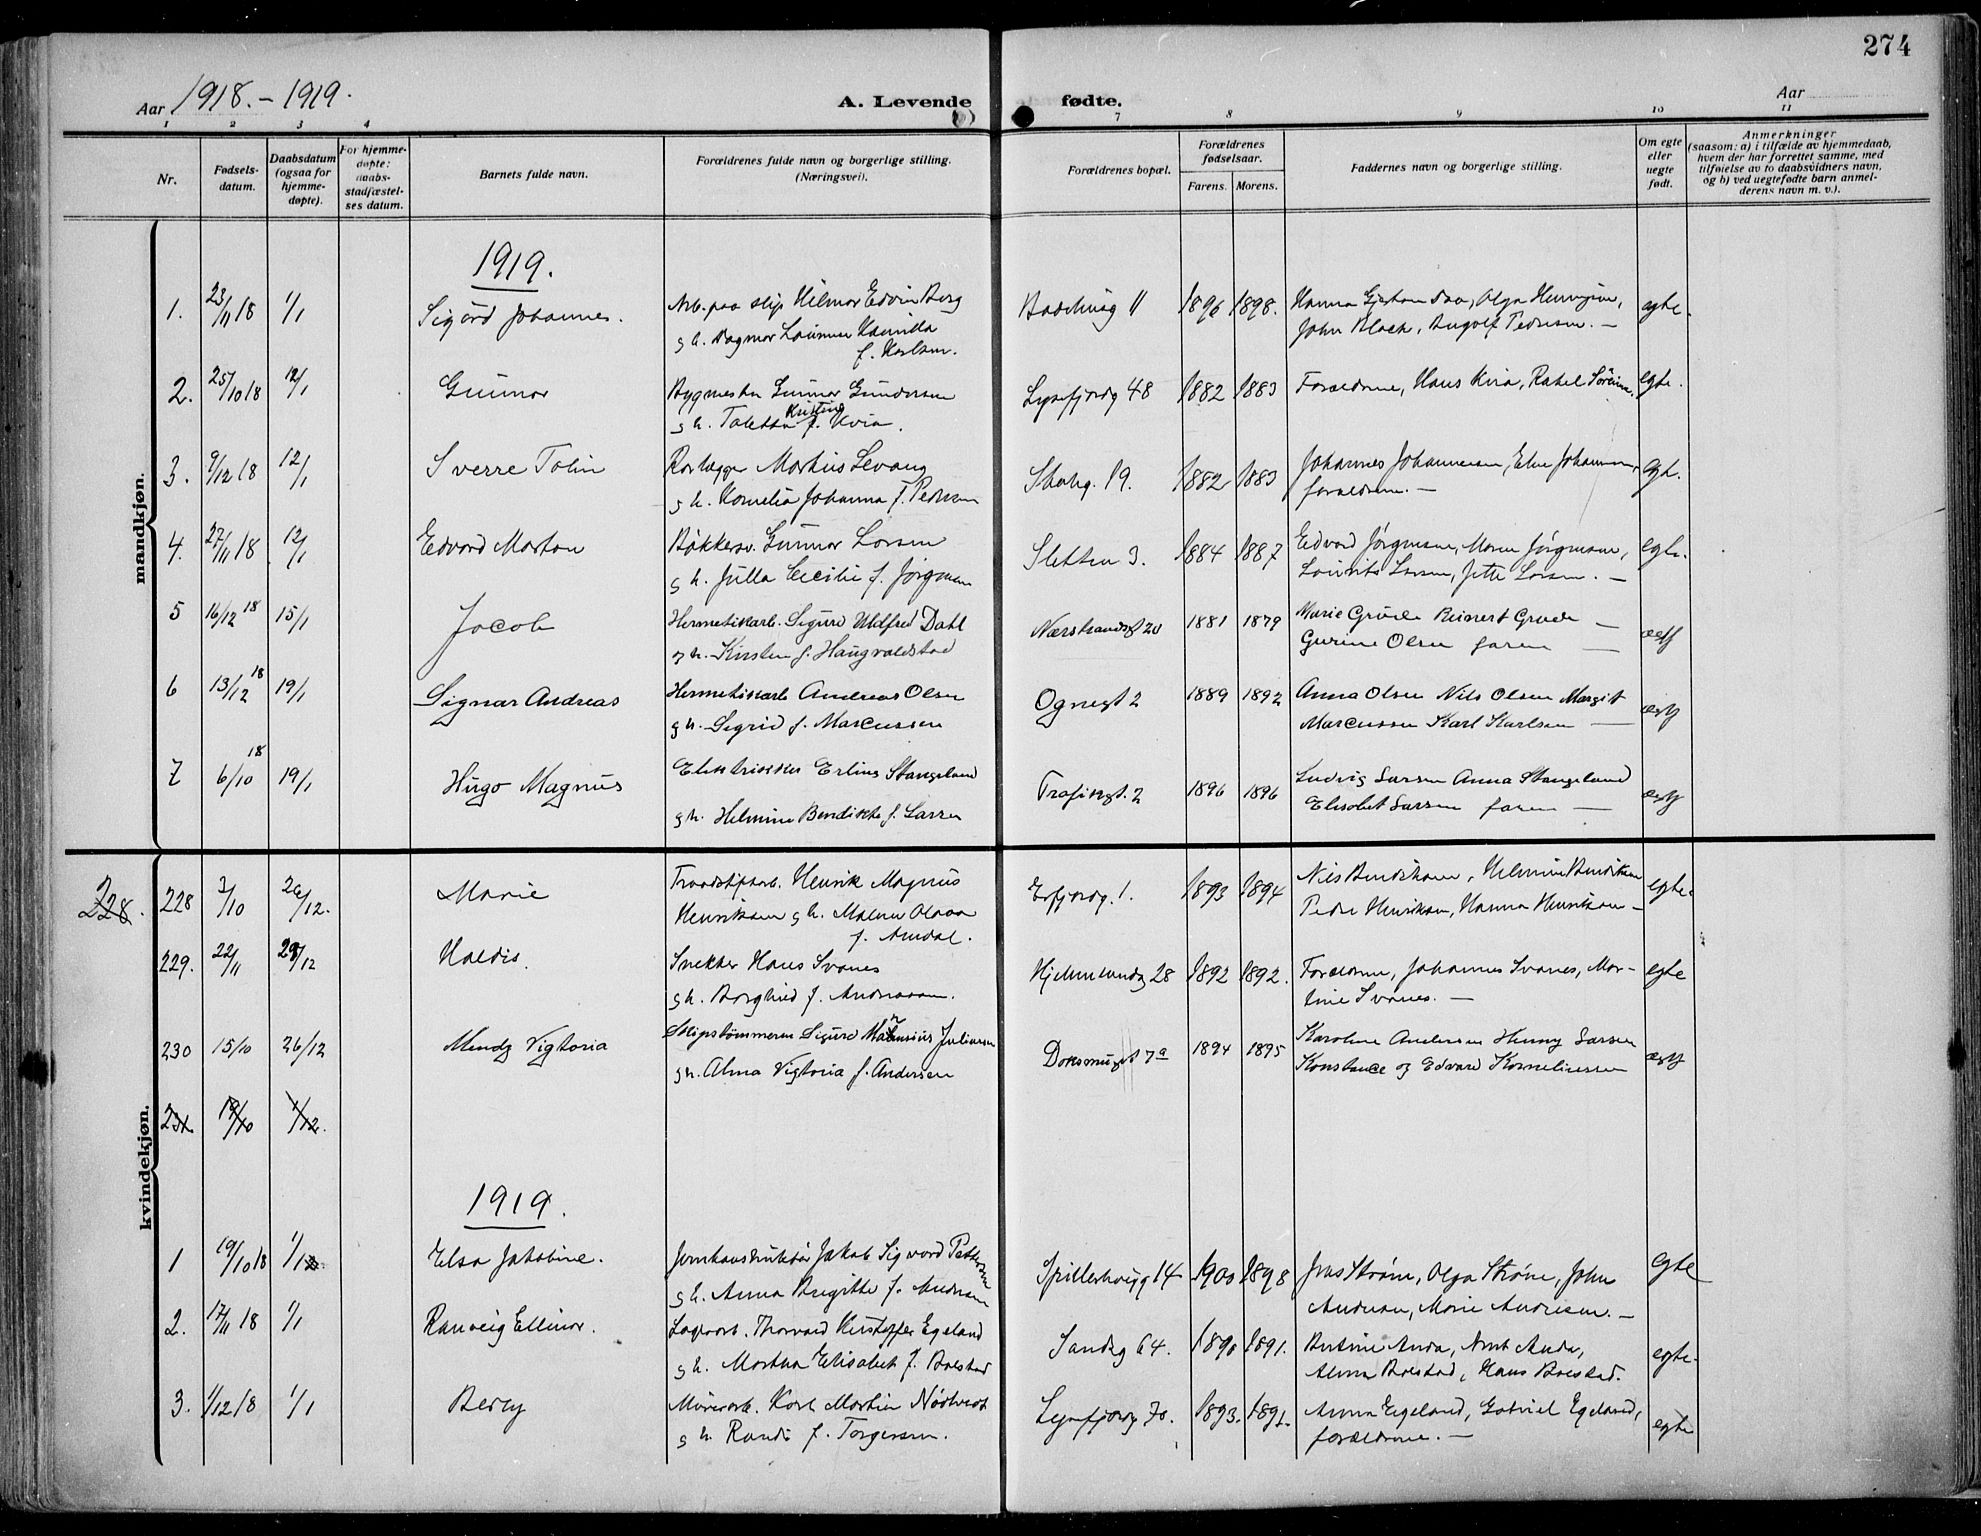 274
Aar 1918. - 1919.
A. Levende fødte.
Aar
1 2 3 4 7 8 9 10 11
Nr.
Fødsels-
datum.
Daabsdatum
(ogsaa for
hjemme-
døpte).
For hjemme-
døpte:
daabs-
stadfæstel-
ses datum.
Barnets fulde navn.
Forældrenes fulde navn og borgerlige stilling.
(Næringsvei).
Forældrenes bopæl.
Forældrenes
fødselsaar.
Farens. Morens.
Faddernes navn og borgerlige stilling.
Om egte
eller
uegte
født.
Anmerkninger
(saasom: a) i tilfælde av hjemmedaab,
hvem der har forrettet samme, med
tilføielse av to daabsvidners navn,
og b) ved uegtefødte barn anmel-
derens navn m. v.).
mandkjøn.
1919.
1. 23/11 18 1/1 Sigurd Johannes. Arb. paa slip Hilmar Edvin Berg 11 1896 1898. egte.
John Block, Pedersen. —
g h. Dagmar f. Karlsen.
2. 25/10 18 12/1 Gunnar Bygmester Gunnar Gundersen Lysefjordg 48 1882 1883 Forældrene, Hans Kvia, Rakel egte.
g h. Taletta Kristine f. Kvia.
3. 9/12 18 12/1 Sverre Tolin Rørlægger Markus Levang 19. 1882 1883 Johannes Johannesen, egte.
g h. Kornelia Johanna f. Pedersen forældrene. —
4. 27/11 18 12/1 Edvard Morton Bøkkersv. Gunnar Larsen Sletten 3. 1884 1887 Edvard Jørgensen, Maren Jørgensen, egte.
g h. Julla Cecilie f. Jørgensen Lauritz Larsen, Jette Larsen. —
5 16/12 18 15/1 Jacob Hermetikarb. Sigurd Uldfred Dahl Nærstrandsgt 20 1881 1879 Marie Grude Reinert Grude — ægt
g h. Kirsten f. Haugvaldstad Gurine Olsen faren —
6 13/12 18 19/1 Signar Andreas Hermetikarb Andreas Olsen Ognegt 2 1889 1892 Anna Olsen Nils Olsen Margit ægt
g h. Sigrid f. Marcussen Marcussen Karl Karlsen —
7 6/10 18 19/1 Hugo Magnus Elektrikker Erling Stangeland Trafikgt. 2 1896 1896 Ludvig Larsen Anna Stangeland ægt
g h. Helmine Bendikte f. Larsen Elisabet Larsen faren —
kvindekjøn.
228. 228 26/12. Marie Traadstiftarb. Henrik Magnus Erfjordg. 1. 1893 1894 Nils Bendiksen, Helmine Bendiksen egte.
Henriksen g h. Malene Olava Peder Henriksen, Hanna Henriksen —
f. Aredal.
229. 22/11 29/12 Haldis. Snekker Hans Svanes Hjelmelandsg 28 1892 1892. Forældrene, Johannes Svanes, Mar- egte
g h. Borghild f. Andreassen. tine Svanes. —
230 15/10 26/12 Mendz Vigtoria Skipstømmermn Sigurd Julianssen 7 a 1894 1895 Karoline Andersen Henny Larsen ægt
g h. Alma Vigtoria f. Andersen Konstance og Edvard Korneliussen
231. 19/10 1/12.
1919.
1 19/10 18 1/1 Elsa Jakobine. Jernkonstruktør Jakob Sigvard Pettersen Spillerhaugg 14 1900 1898 Jens Strøm, Olga Strøm, John Egte
g h. Anna Birgitte f. Andresen Andresen, Marie Andresen. —
2. 17/11 18 1/1 Ranveig Ellinor. Lagerarb. Thorvald Kristoffer Egeland Sandsg 64. 1890 1891. Bertine Anda, Arnt Anda, egte.
g h. Martha Elisabet f. Bolstad Alma Bolstad, Hans Bolstad.
3. 1/12 18 1/1 Berly Murerarb. Karl Martin Nødtvedt Lysefjordg 70. 1893. 1891. Anna Egeland, Gabriel Egeland, egte
g h. Randi f. Torgersen. forældrene. —